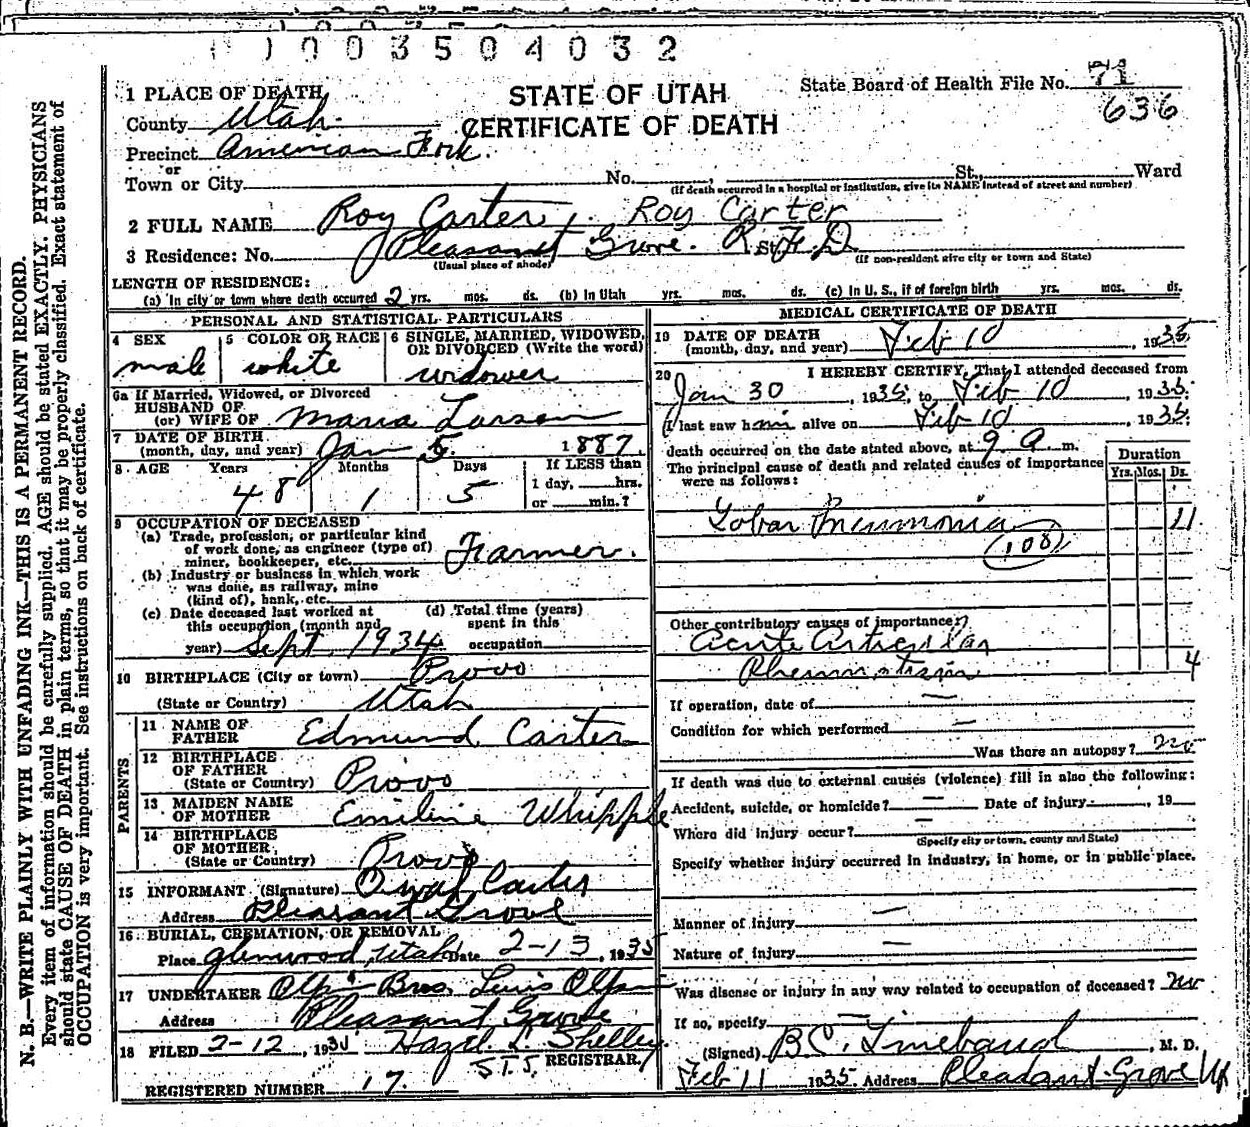 1003504032
1 PLACE OF DEATH
STATE OF UTAH
State Board of Health File No. 71
County Utah
CERTIFICATE OF DEATH
636
Precinct American Fork.
or
Town or City No. , St., Ward
(If death occurred in a hospital or institution, give its NAME instead of street and number)
2 FULL NAME Roy Carter, Roy Carter
3 Residence: No. Pleasant Grove. R. St. F. D.
(Usual place of abode) (If non-resident give city or town and State)
LENGTH OF RESIDENCE:
(a) In city or town where death occurred 2 yrs. mos. ds. (b) In Utah yrs. mos. ds. (c) In U. S., if of foreign birth yrs. mos. ds.
PERSONAL AND STATISTICAL PARTICULARS
4 SEX 5 COLOR OR RACE 6 SINGLE, MARRIED, WIDOWED,
OR DIVORCED (Write the word)
male white widower
6a If Married, Widowed, or Divorced
HUSBAND OF
(or) WIFE OF Maria Larsen
7 DATE OF BIRTH
(month, day, and year) Jan 5, 1887
8 AGE Years Months Days If LESS than
1 day, hrs.
48 1 5 or min.?
9 OCCUPATION OF DECEASED
(a) Trade, profession, or particular kind
of work done, as engineer (type of)
miner, bookkeeper, etc. Farmer.
(b) Industry or business in which work
was done, as railway, mine
(kind of), bank, etc.
(c) Date deceased last worked at (d) Total time (years)
this occupation (month and spent in this
year) Sept. 1934 occupation
10 BIRTHPLACE (City or town) Provo
(State or Country) Utah
PARENTS
11 NAME OF
FATHER Edmund Carter
12 BIRTHPLACE
OF FATHER
(State or Country) Provo
13 MAIDEN NAME
OF MOTHER Emiline Whipple
14 BIRTHPLACE
OF MOTHER
(State or Country) Provo
15 INFORMANT (Signature) Carter
Address Pleasant Grove
16 BURIAL, CREMATION, OR REMOVAL
Place Glenwood, Utah Date 2-13, 1935
17 UNDERTAKER Olpin Bros. Lewis Olpin
Address Pleasant Grove
18 FILED 2-12, 1935 Hazel L. Shelley
REGISTRAR
REGISTERED NUMBER 17.
MEDICAL CERTIFICATE OF DEATH
19 DATE OF DEATH
(month, day, and year) Feb 10, 1935
20 I HEREBY CERTIFY, That I attended deceased from
Jan 30, 1935 to Feb 10, 1935
I last saw him alive on Feb 10, 1935
death occurred on the date stated above, at 9 A m.
The principal cause of death and related causes of importance
were as follows:
Duration
Yrs. Mos. Ds.
Lobar Pneumonia 11
(108)
Other contributory causes of importance:
Acute Articular
Rheumatism 4
If operation, date of —
Condition for which performed —
Was there an autopsy? no
If death was due to external causes (violence) fill in also the following:
Accident, suicide, or homicide? — Date of injury , 19
Where did injury occur? —
(Specify city or town, county and State)
Specify whether injury occurred in industry, in home, or in public place.
Manner of injury —
Nature of injury —
Was disease or injury in any way related to occupation of deceased? no
If so, specify —
(Signed) B.C. Linebaugh, M. D.
Feb 11 1935 Address Pleasant Grove Ut
N. B.—WRITE PLAINLY WITH UNFADING INK—THIS IS A PERMANENT RECORD.
Every item of information should be carefully supplied. AGE should be stated EXACTLY. PHYSICIANS
should state CAUSE OF DEATH in plain terms, so that it may be properly classified. Exact statement of
OCCUPATION is very important. See instructions on back of certificate.